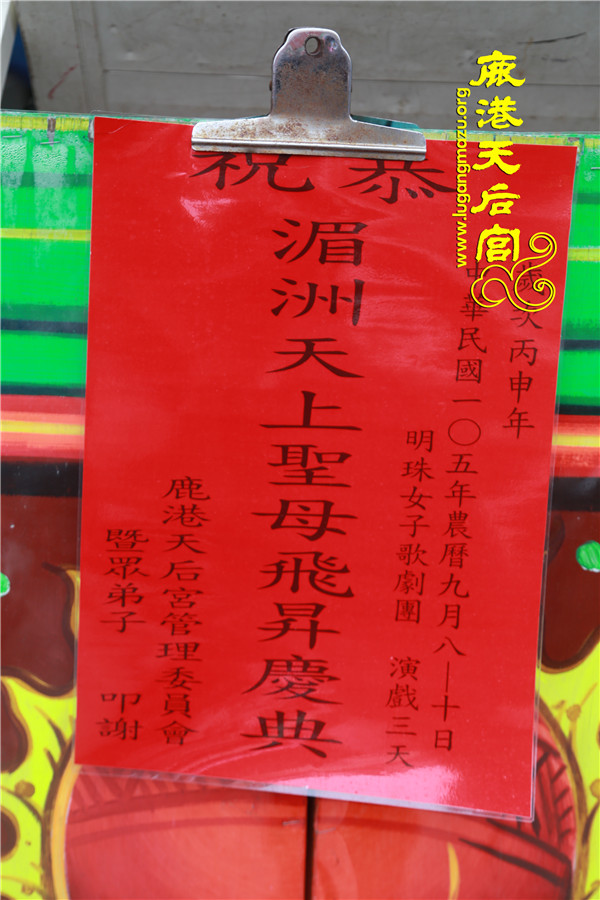 恭祝
歲次丙申年
中華民國一〇五年農曆九月八—十日
明珠女子歌劇團 演戲三天
湄洲天上聖母飛昇慶典
鹿港天后宮管理委員會
暨眾弟子 叩謝
鹿港天后宫
www.lugangmazu.org